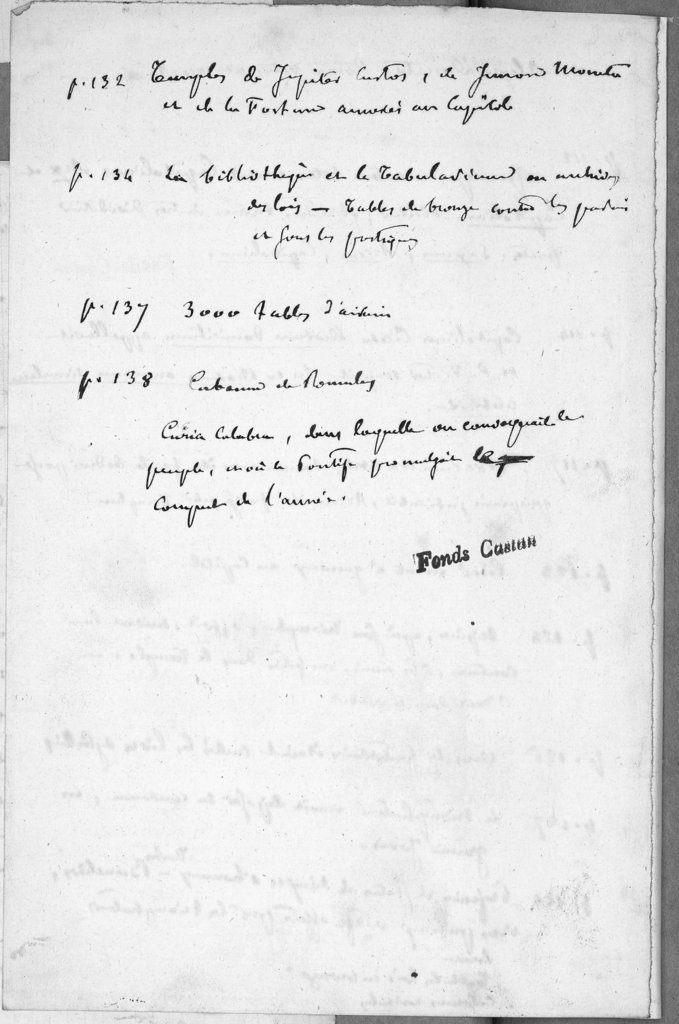 p. 132 Temples de Jupiter Custos, de Junon Moneta
et de la Fortune annexés au Capitole
p. 134 La bibliothèque et le Tabularium ou archives
des lois — Tables de bronze contre les parois
et sous les portiques
p. 137 3000 tables d'airain
p. 138 Cabane de Romulus
Curia Calabra, dans laquelle on convoquait le
peuple, et où le Pontife promulgait
comput de l'année.
Fonds Castan